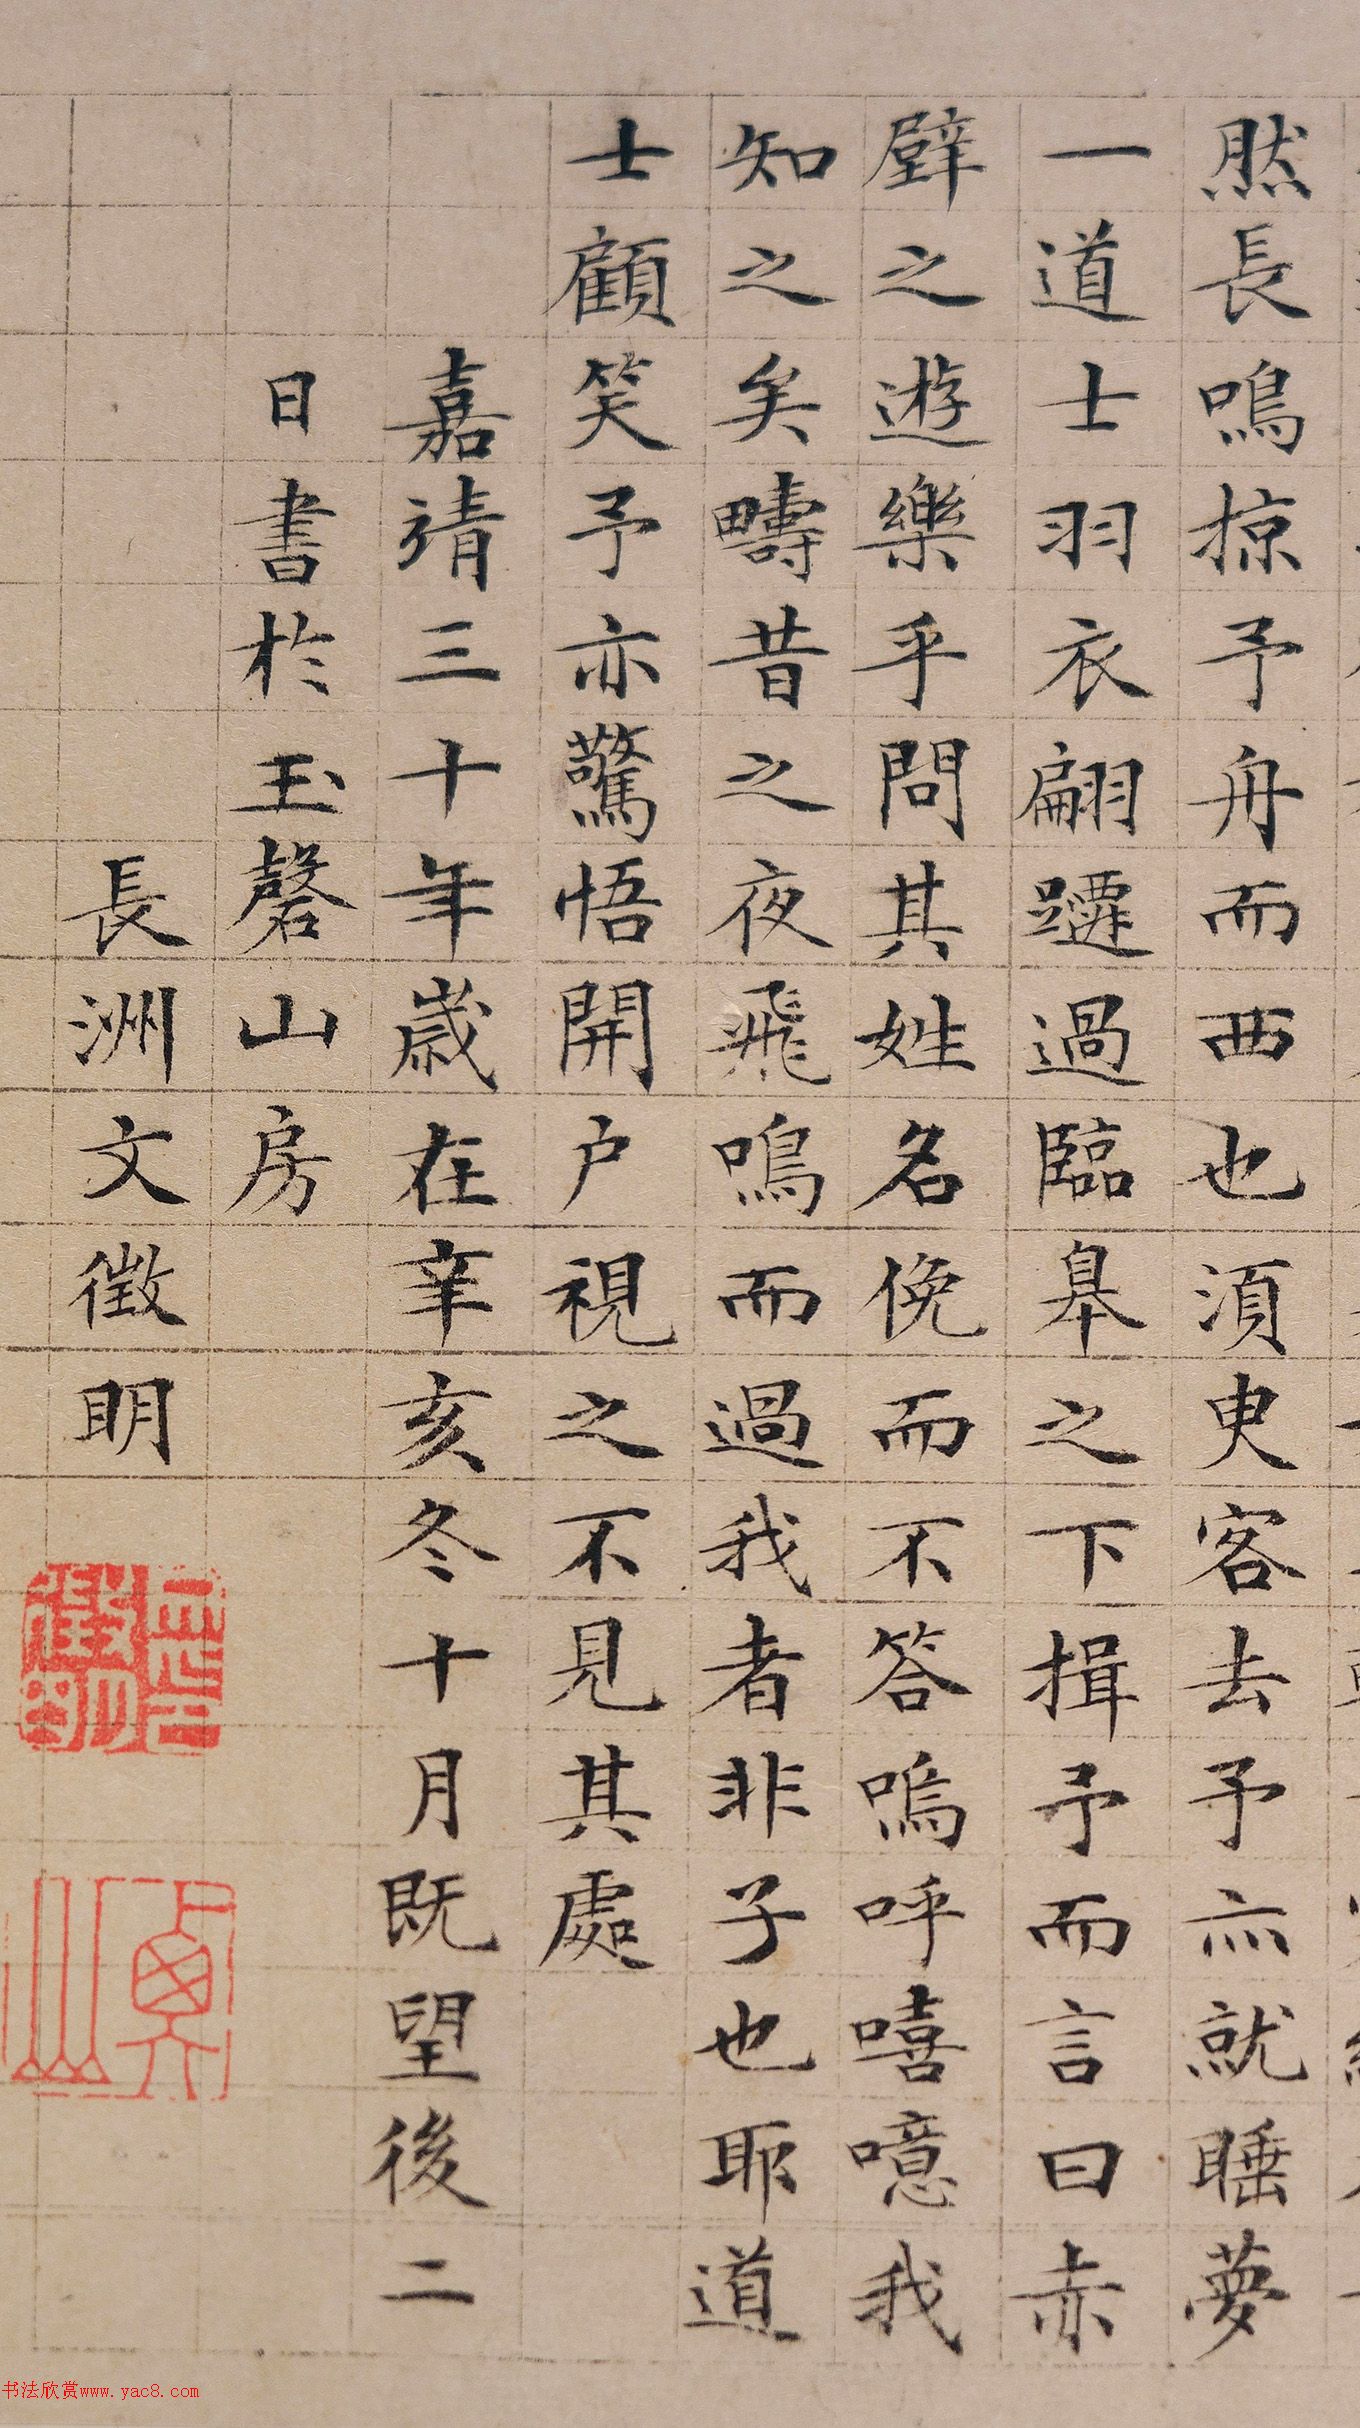 然長鳴掠予舟而西也須臾客去予亦就睡夢
一道士羽衣翩躚過臨皋之下揖予而言曰赤
壁之遊樂乎問其姓名俛而不答嗚呼嘻噫我
知之矣疇昔之夜飛鳴而過我者非子也耶道
士顧笑予亦驚悟開户視之不見其處
嘉靖三十年歲在辛亥冬十月既望後二
日書於玉磬山房
長洲文徵明
书法欣赏www.yac8.com